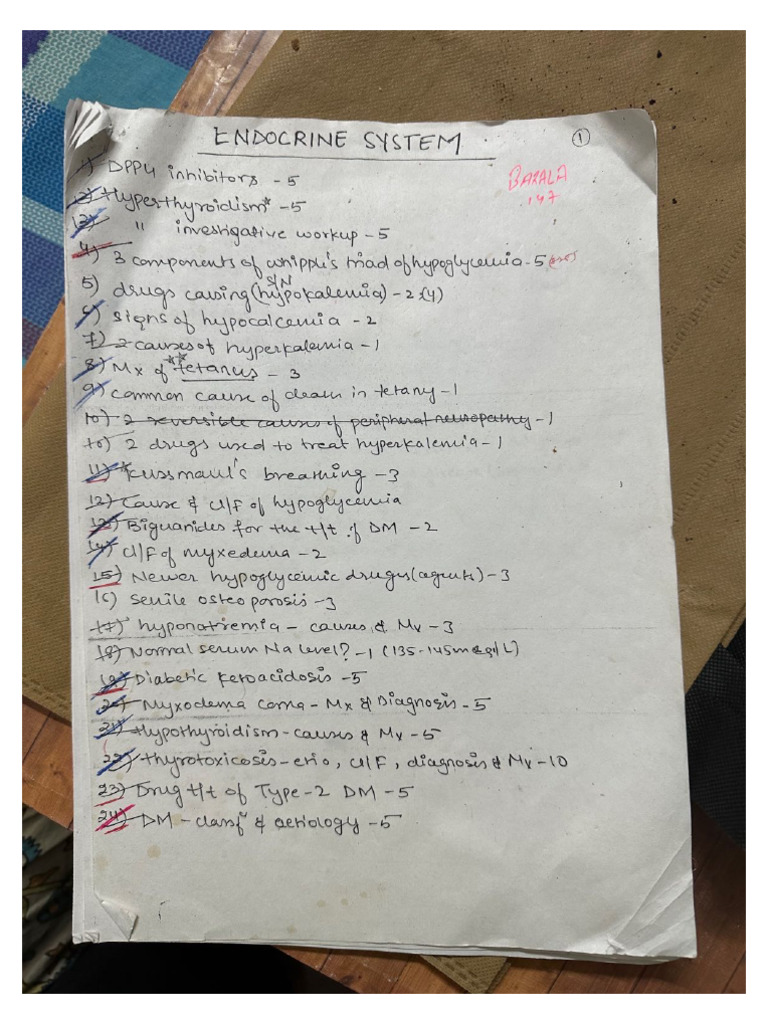 ENDOCRINE SYSTEM
①
BARALA
147
1) DPP4 inhibitors - 5
2) Hyperthyroidism* - 5
3) " investigative workup - 5
4) 3 components of whipple's triad of hypoglycemia - 5
S/N
5) drugs causing (hypokalemia) - 2 (4)
6) signs of hypocalcemia - 2
7) 2 causes of hyperkalemia - 1
8) Mx of **tetanus - 3
9) common cause of death in tetany - 1
10) 2 reversible causes of peripheral neuropathy - 1
10) 2 drugs used to treat hyperkalemia - 1
11) Kussmaul's breathing - 3
12) Cause & Cl/F of hypoglycemia
13) Biguanides for the t/t of DM - 2
14) Cl/F of myxedema - 2
15) Newer hypoglycemic drugs (agents) - 3
16) Senile osteoporosis - 3
17) hyponatremia - causes & Mx - 3
18) Normal serum Na level? - 1 (135-145 meq/L)
19) Diabetic Keroacidosis - 5
20) Myxodema coma - Mx & Diagnosis - 5
21) Hypothyroidism - causes & Mx - 5
22) Thyrotoxicosis - etio, Cl/F, diagnosis & Mx - 10
23) Drug t/t of Type-2 DM - 5
24) DM - classfⁿ & aetiology - 5